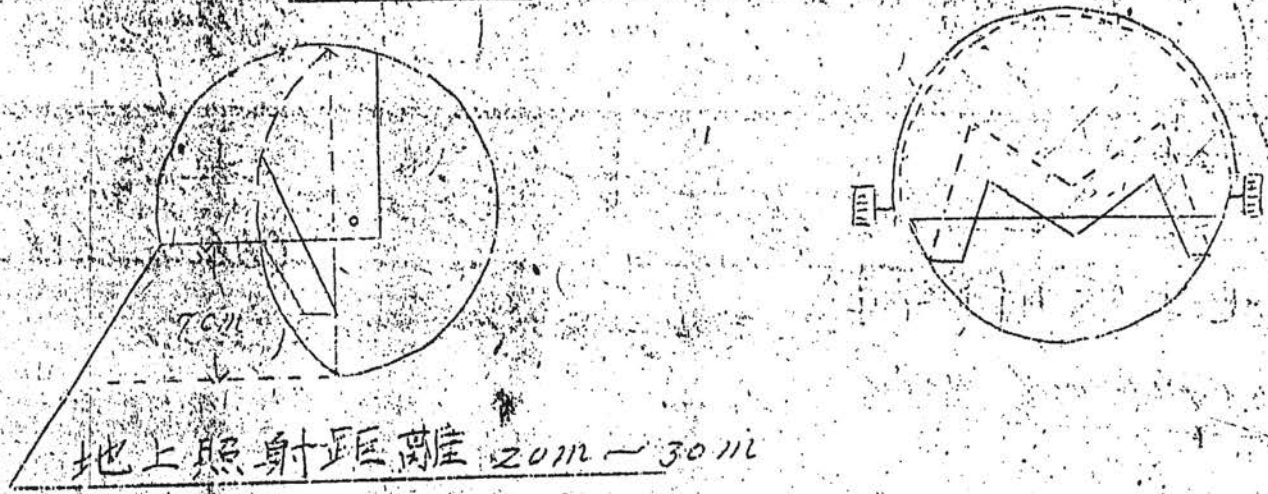 7cm
地上照射距離 20m～30m